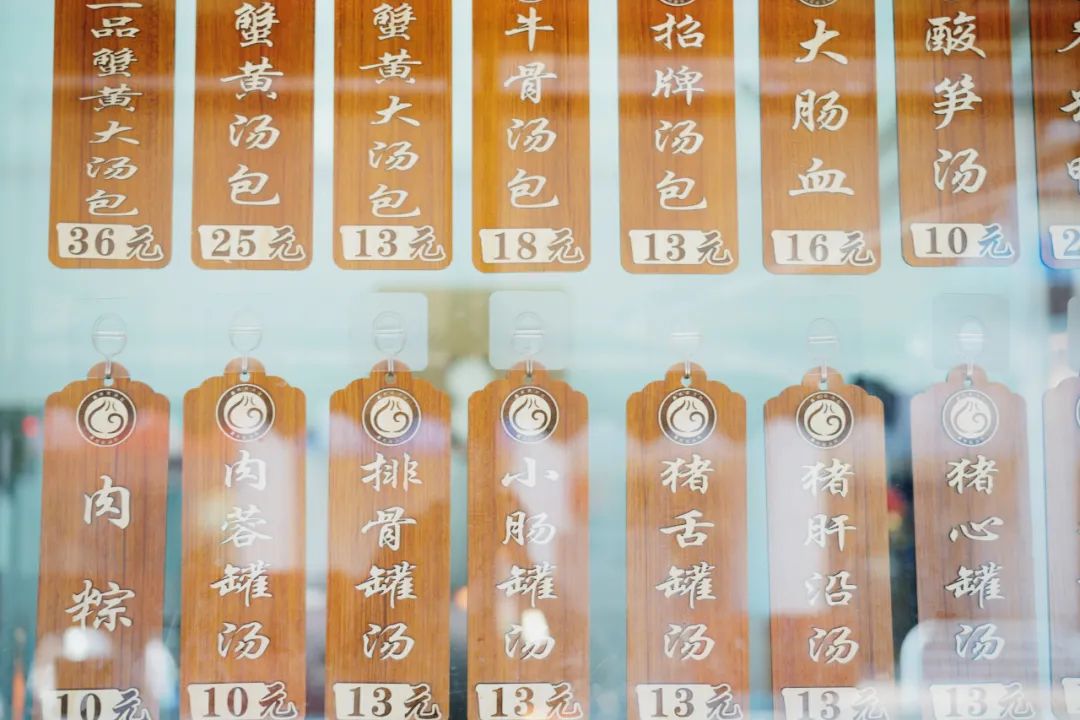 一品蟹黄大汤包
36元
蟹黄汤包
25元
蟹黄大汤包
13元
牛骨汤包
18元
招牌汤包
13元
大肠血
16元
酸笋汤
10元
肉粽
10元
肉蓉罐汤
10元
排骨罐汤
13元
小肠罐汤
13元
猪舌罐汤
13元
猪肝沿汤
13元
猪心罐汤
13元